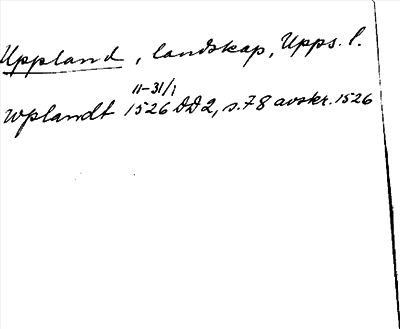 Uppland, landskap, Upps. l.
11-31/1
wplandt 1526 DD2, s. 78 avskr. 1526